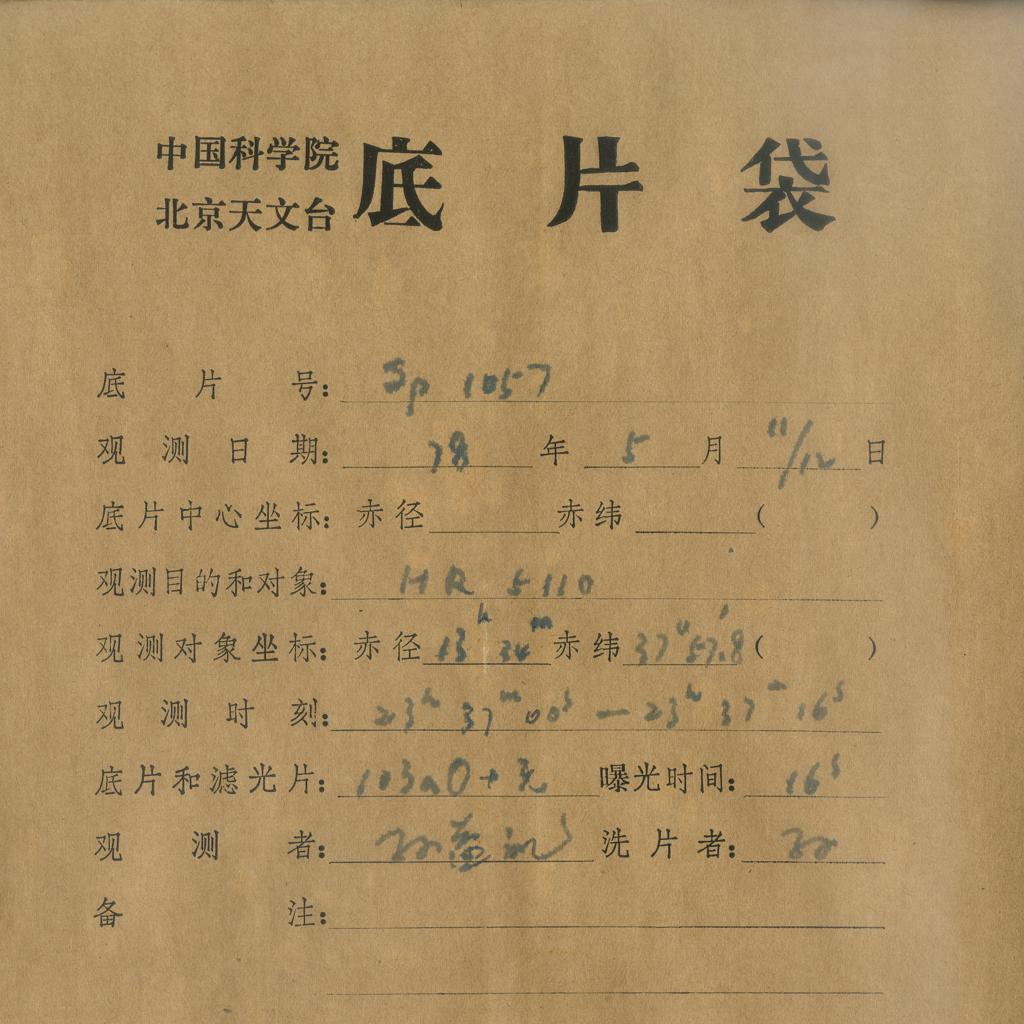 中国科学院
北京天文台
底片袋
底片号: Sp 1057
观测日期: 78 年 5 月 11/12 日
底片中心坐标: 赤径 赤纬 ( )
观测目的和对象: HR 5110
观测对象坐标: 赤径 13h 34m 赤纬 37° 57.8' ( )
观测时刻: 23h 37m 00s — 23h 37m 16s
底片和滤光片: 103aO + 无 曝光时间: 16s
观测者: 孙益礼 洗片者: 孙
备注: